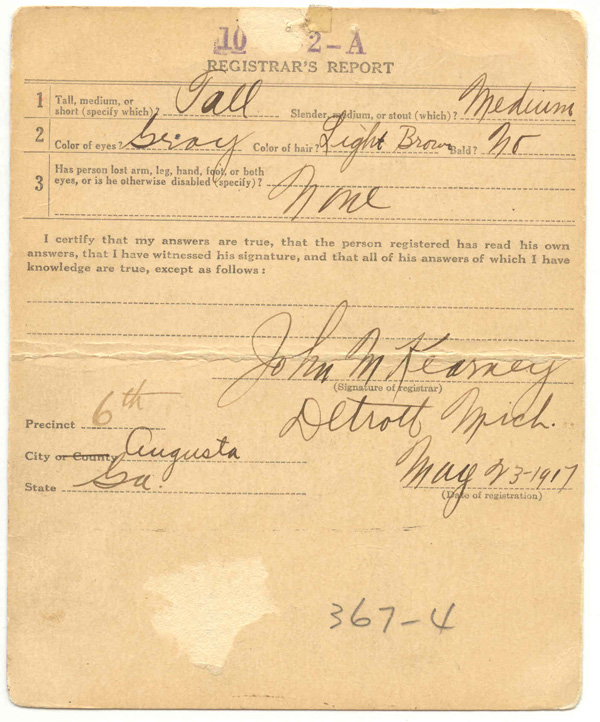 10 2-A
REGISTRAR'S REPORT
1 Tall, medium, or short (specify which)? Tall Slender, medium, or stout (which)? Medium
2 Color of eyes? Gray Color of hair? Light Brown Bald? No
3 Has person lost arm, leg, hand, foot, or both eyes, or is he otherwise disabled (specify)? None
I certify that my answers are true, that the person registered has read his own
answers, that I have witnessed his signature, and that all of his answers of which I have
knowledge are true, except as follows:
John M Kearney
(Signature of registrar)
Precinct 6th Detroit Mich.
City or County Augusta
State Ga. May 23-1917
(Date of registration)
367-4